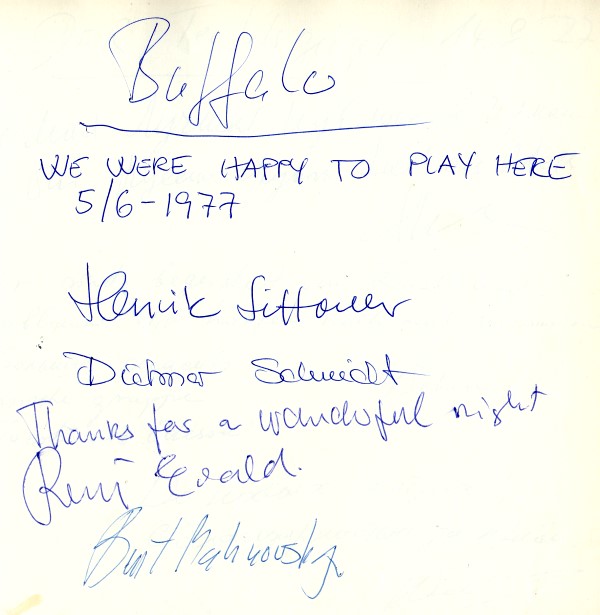 Buffalo
WE WERE HAPPY TO PLAY HERE
5/6-1977
Henrik Sittauer
Dietmar Schmidt
Thanks for a wonderful night
René Evald.
Burt